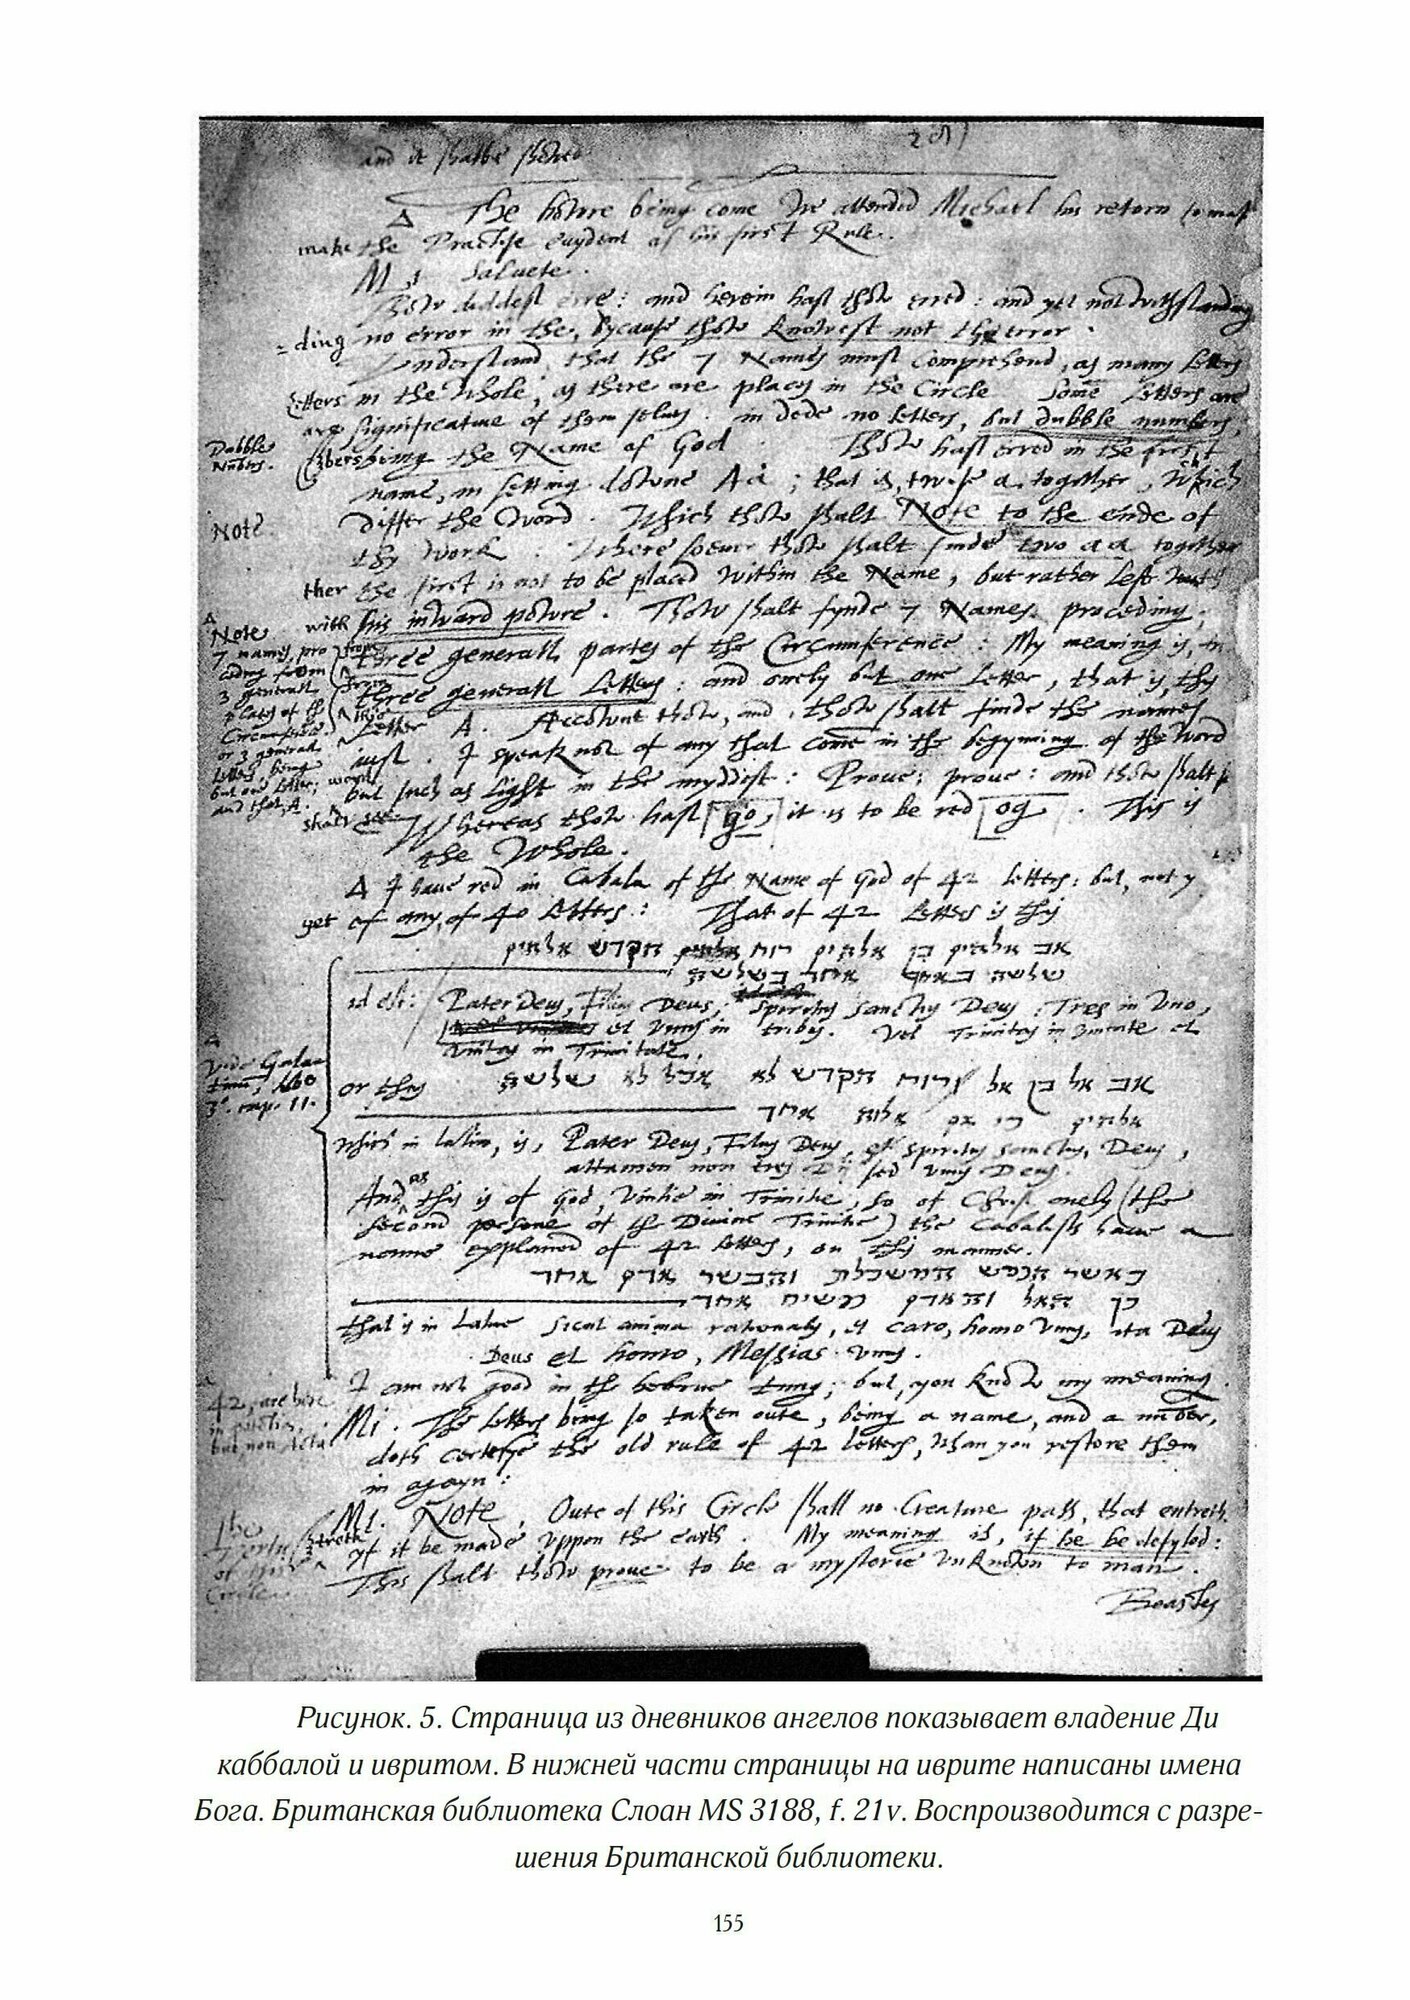 and it shalbe shewed
Δ The howre being come we attended Michael his retorn to
make the Practise evydent of his first Rule.
Mi Salvete.
Thow diddest erre: and herein hast thow erred: and yet notwithstanding
ding no error in the, bycause thow knowest not the error.
Understand, that the 7 Names must Comprehend, as many letters
letters in the whole, as there are places in the Circle Some letters are
are significative of them selves. in dede no letters, but dubble numbers,
Dubble
Nũbers.
bers being the Name of God. Thow hast erred in the first
name, in setting downe Aa; that is, twise a together, Which
differ the word. Which thow shalt Note to the ende of
Note.
thy work. Where soever thow shalt finde two aa together
ther the first is not to be placed within the Name, but rather left with
with his inward powre. Thow shalt fynde 7 Names proceding,
Note
7 names, pro
ceding from
3 generall
places of the
Circumference,
or 3 generall
letters being
but one letter;
and that, A.
from
three generall partes of the Circumference: My meaning is,
from
three generall letters: and onely but one letter, that is, this
letter A. Accownt thow, and thow shalt finde the names
just. I speak not of any that come in the begynning of the word
but such as light in the myddest: Prove; prove: and thow shalt
shalt see. Whereas thow hast go, it is to be red og. This is
the Whole.
Δ I have red in Cabala of the Name of God of 42 letters: but, not y
yet of any, of 40 letters: That of 42 letters is this
אב אלהים בן אלהים רוח הקדש אלהים
שלשה באחד אחד בשלשה
id est: Pater Deus, Filius Deus, Spiritus Sanctus Deus, Tres in Uno,
et Unus in tribus. Vel Trinitas in Unitate et
Unitas in Trinitate.
Vide Gala
tinum, libro
3°. cap. 11.
or this אב אל בן אל ורוח הקדש אל אבל לא שלשה
אלהים כי אם אלוה אחד
which in latin, is, Pater Deus, Filius Deus, et Spiritus Sanctus, Deus,
attamen non tres Dij sed Unus Deus.
And as this is of God, Unitie in Trinitie, so of Christ onely (the
second persone of the Divine Trinitie) the Cabalists have a
name explaned of 42 letters, on this manner.
כאשר הנפש המשכלת והבשר אדם אחד
כך האל והאדם משיח אחד
that is in Latine Sicut anima rationalis, et caro, homo Unus, ita Deus
Deus et homo, Messias Unus.
I am not good in the hebrue tung; but, you know my meaning.
42, are here
in potentia,
but, non Actu
Mi. The letters being so taken oute, being a name, and a nũber,
doth certefye the old rule of 42 letters, whan you restore them
in agayn:
Mi. Note, Oute of this Circle shall no Creature pass, that entreth,
treth yf it be made uppon the earth. My meaning is, if he be defyled:
This shalt thow prove to be a mysterie unknown to man.
The
Vertu
of this
Circle.
Beastes
Рисунок. 5. Страница из дневников ангелов показывает владение Ди
каббалой и ивритом. В нижней части страницы на иврите написаны имена
Бога. Британская библиотека Слоан MS 3188, f. 21v. Воспроизводится с разре-
шения Британской библиотеки.
155